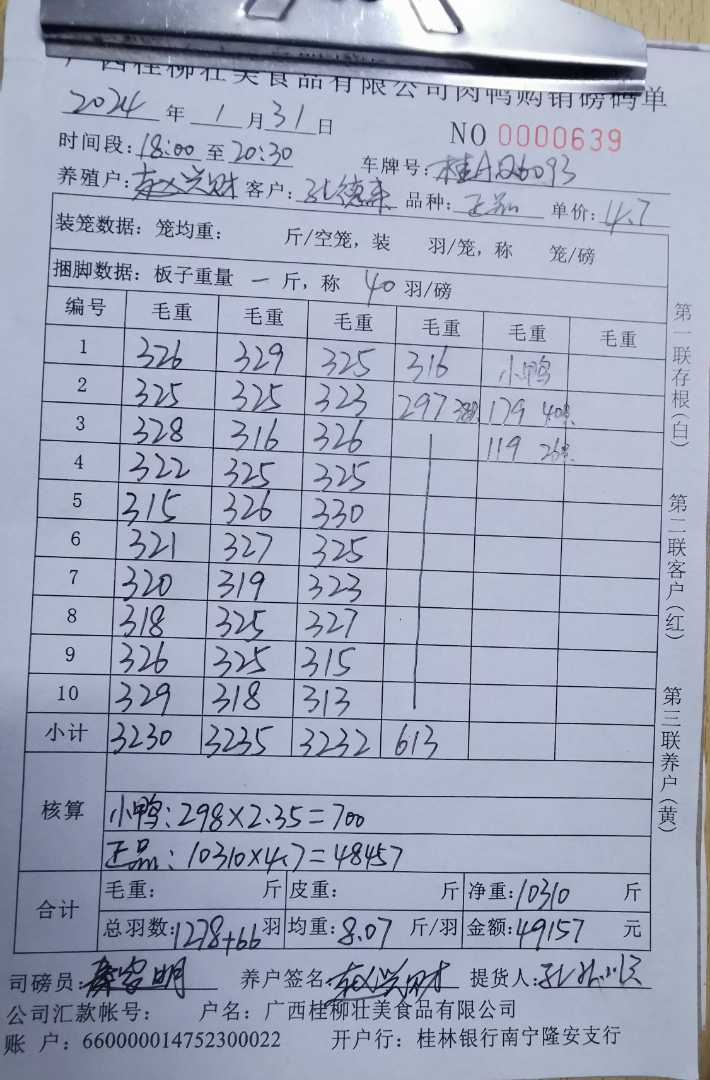 广西桂柳壮美食品有限公司肉鸭购销磅码单
2024 年 1 月 31 日 NO 0000639
时间段: 18:00 至 20:30 车牌号: 桂A
养殖户: 兴财 客户: 孔德来 品种: 正品 单价: 4.7
装笼数据: 笼均重: 斤/空笼, 装 羽/笼, 称 笼/磅
捆脚数据: 板子重量 一 斤, 称 40 羽/磅
编号 毛重 毛重 毛重 毛重 毛重 毛重
1 326 329 325 316 小鸭
2 325 325 323 297 38只 179 40只
3 328 316 326 119 26只
4 322 325 325
5 315 326 330
6 321 327 325
7 320 319 323
8 318 325 327
9 326 325 315
10 329 318 313
小计 3230 3235 3232 613
核算
小鸭: 298×2.35=700
正品: 10310×4.7=48457
合计
毛重: 斤 皮重: 斤 净重: 10310 斤
总羽数: 1278+66 羽 均重: 8.07 斤/羽 金额: 49157 元
司磅员: 明 养户签名: 兴财 提货人:
公司汇款帐号: 户名: 广西桂柳壮美食品有限公司
账 户: 660000014752300022 开户行: 桂林银行南宁隆安支行
第一联存根(白)
第二联客户(红)
第三联养户(黄)